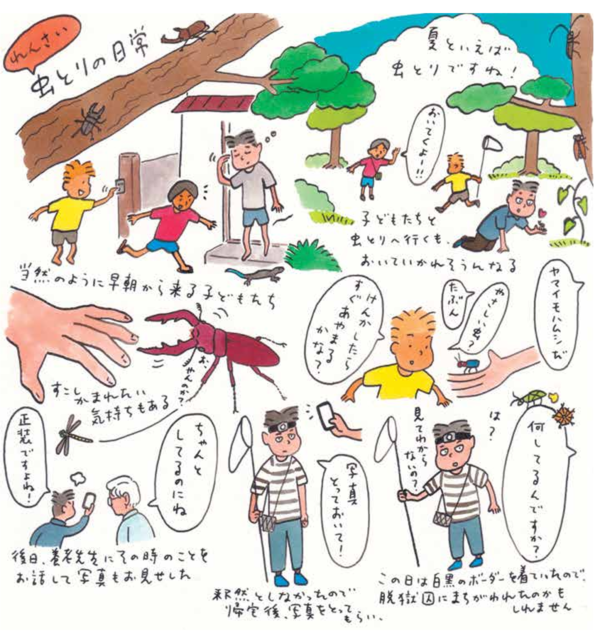 れんさい
虫とりの日常
夏といえば
虫とりですね!
おいてくよー!!
子どもたちと
虫とりへ行くも、
おいていかれそうんなる
当然のように早朝から来る子どもたち
お、
やんのか?
すこしかまれたい
気持ちもある
ヤマイモハムシだ
やさしい虫?
たぶん
けんかしたら
すぐあやまる
かな?
正装ですよね!
ちゃんと
してるのにね
後日、養老先生にその時のことを
お話して写真もお見せした
写真
とっておいて!
釈然としなかったので
帰宅後、写真をとって
もらい、
は?
見てわから
ないの?
何してるんですか?
この日は白黒のボーダーを着ていたので、
脱獄囚にまちがわれたのかも
しれません